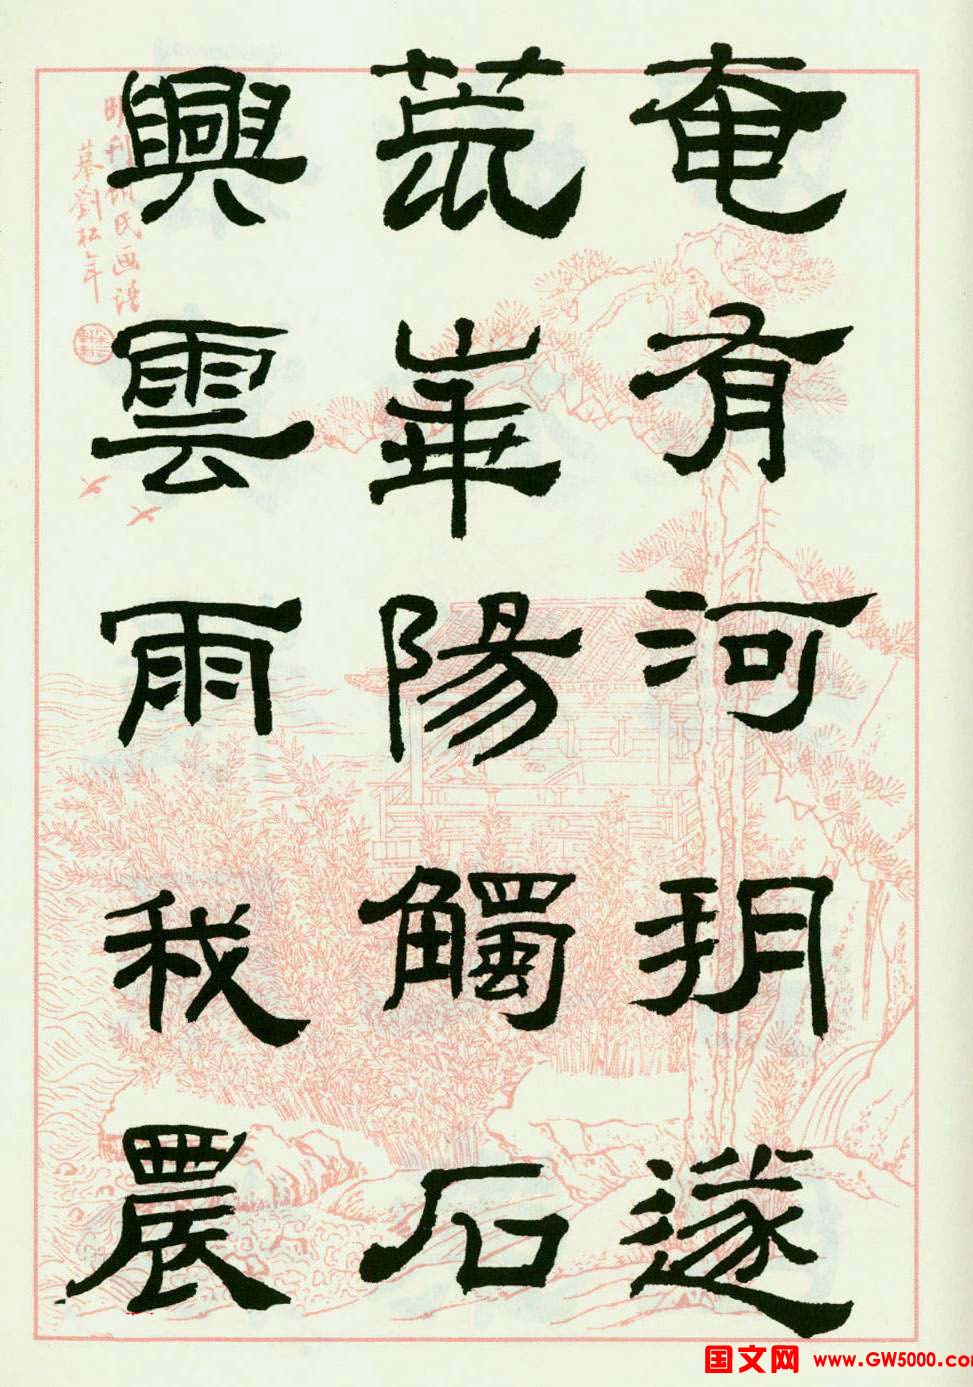 奄有河朔遂
荒華陽觸石
興雲雨我農
明刊顾氏画谱
摹劉松年
国文网 www.GW5000.com